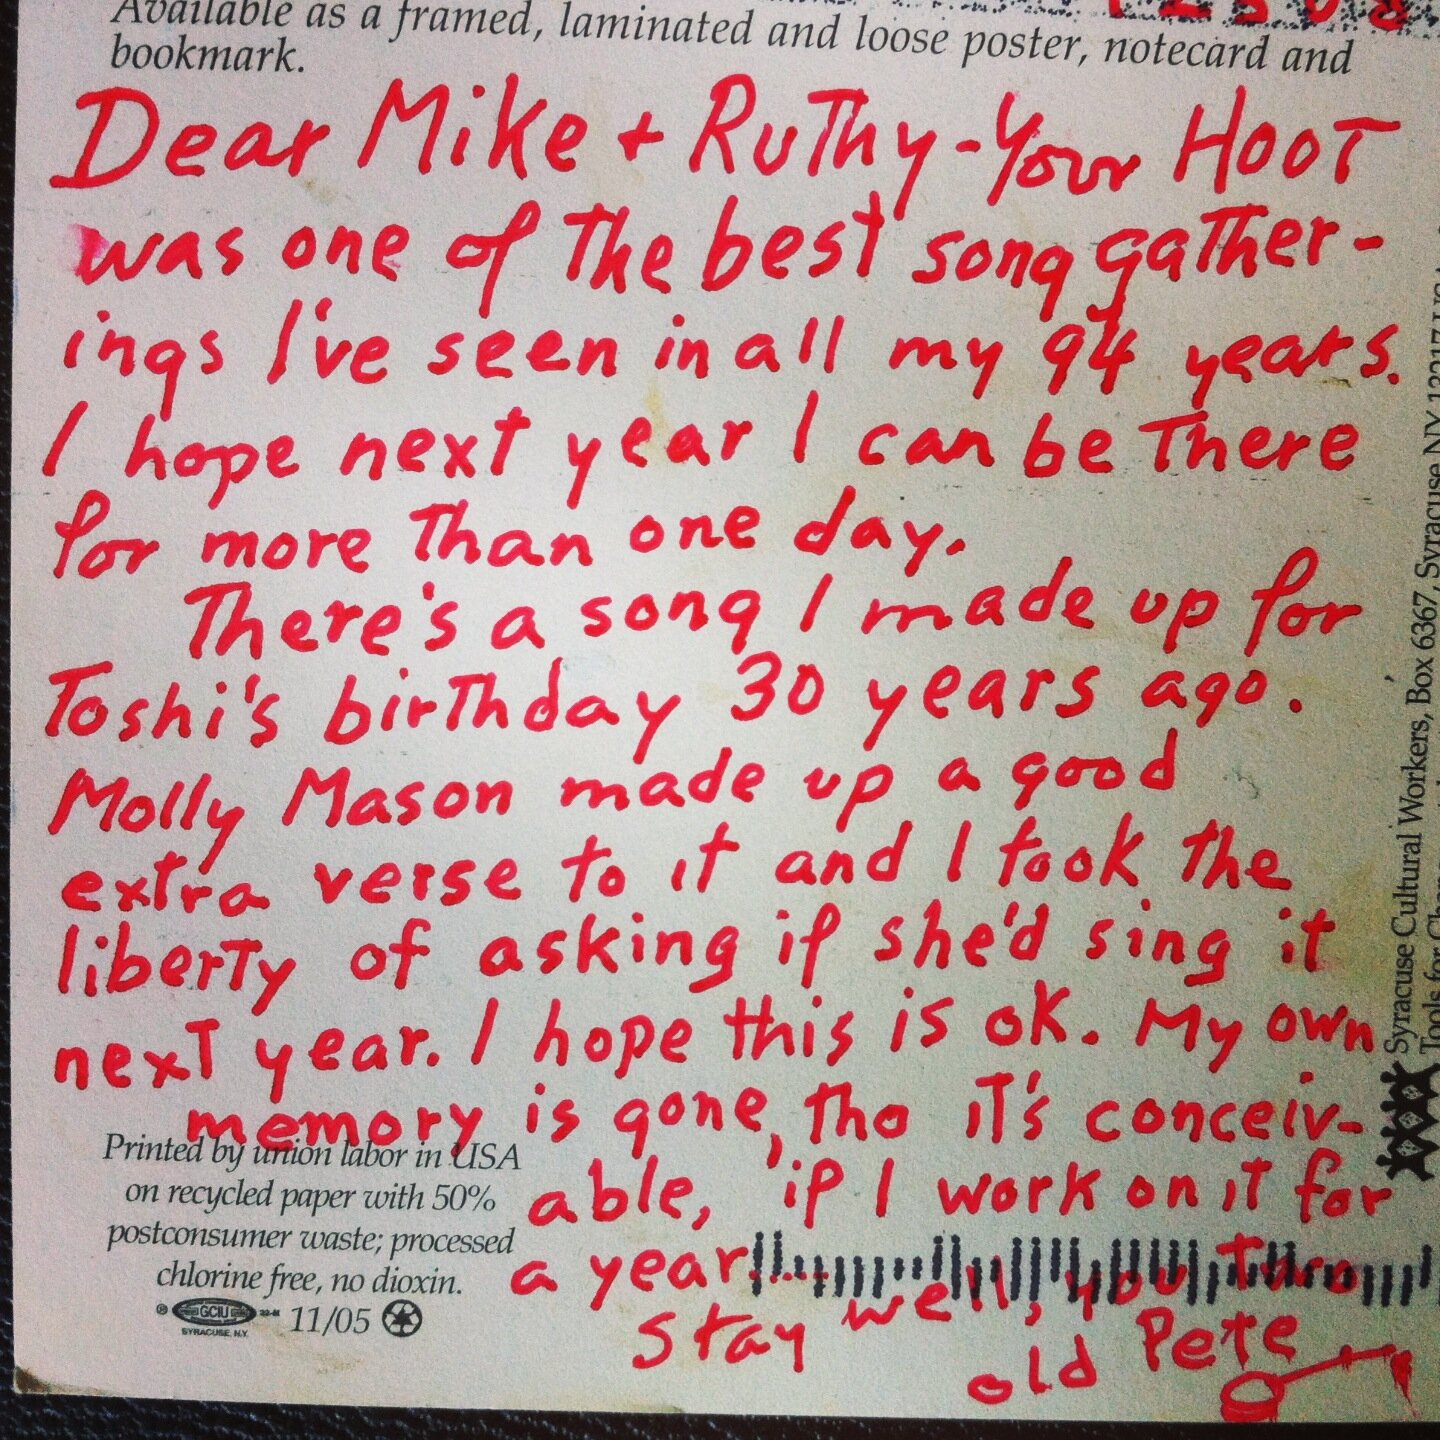 Available as a framed, laminated and loose poster, notecard and
bookmark.
Dear Mike + Ruthy - Your HOOT
was one of the best song gather-
ings I've seen in all my 94 years.
I hope next year I can be there
for more than one day.
There's a song I made up for
Toshi's birthday 30 years ago.
Molly Mason made up a good
extra verse to it and I took the
liberty of asking if she'd sing it
next year. I hope this is OK. My own
memory is gone, tho it's conceiv-
able, if I work on it for
a year....
Stay well, you two
old Pete
Printed by union labor in USA
on recycled paper with 50%
postconsumer waste; processed
chlorine free, no dioxin.
GCIU
SYRACUSE, N.Y.
11/05
Syracuse Cultural Workers, Box 6367, Syracuse NY 13217 USA
Tools for